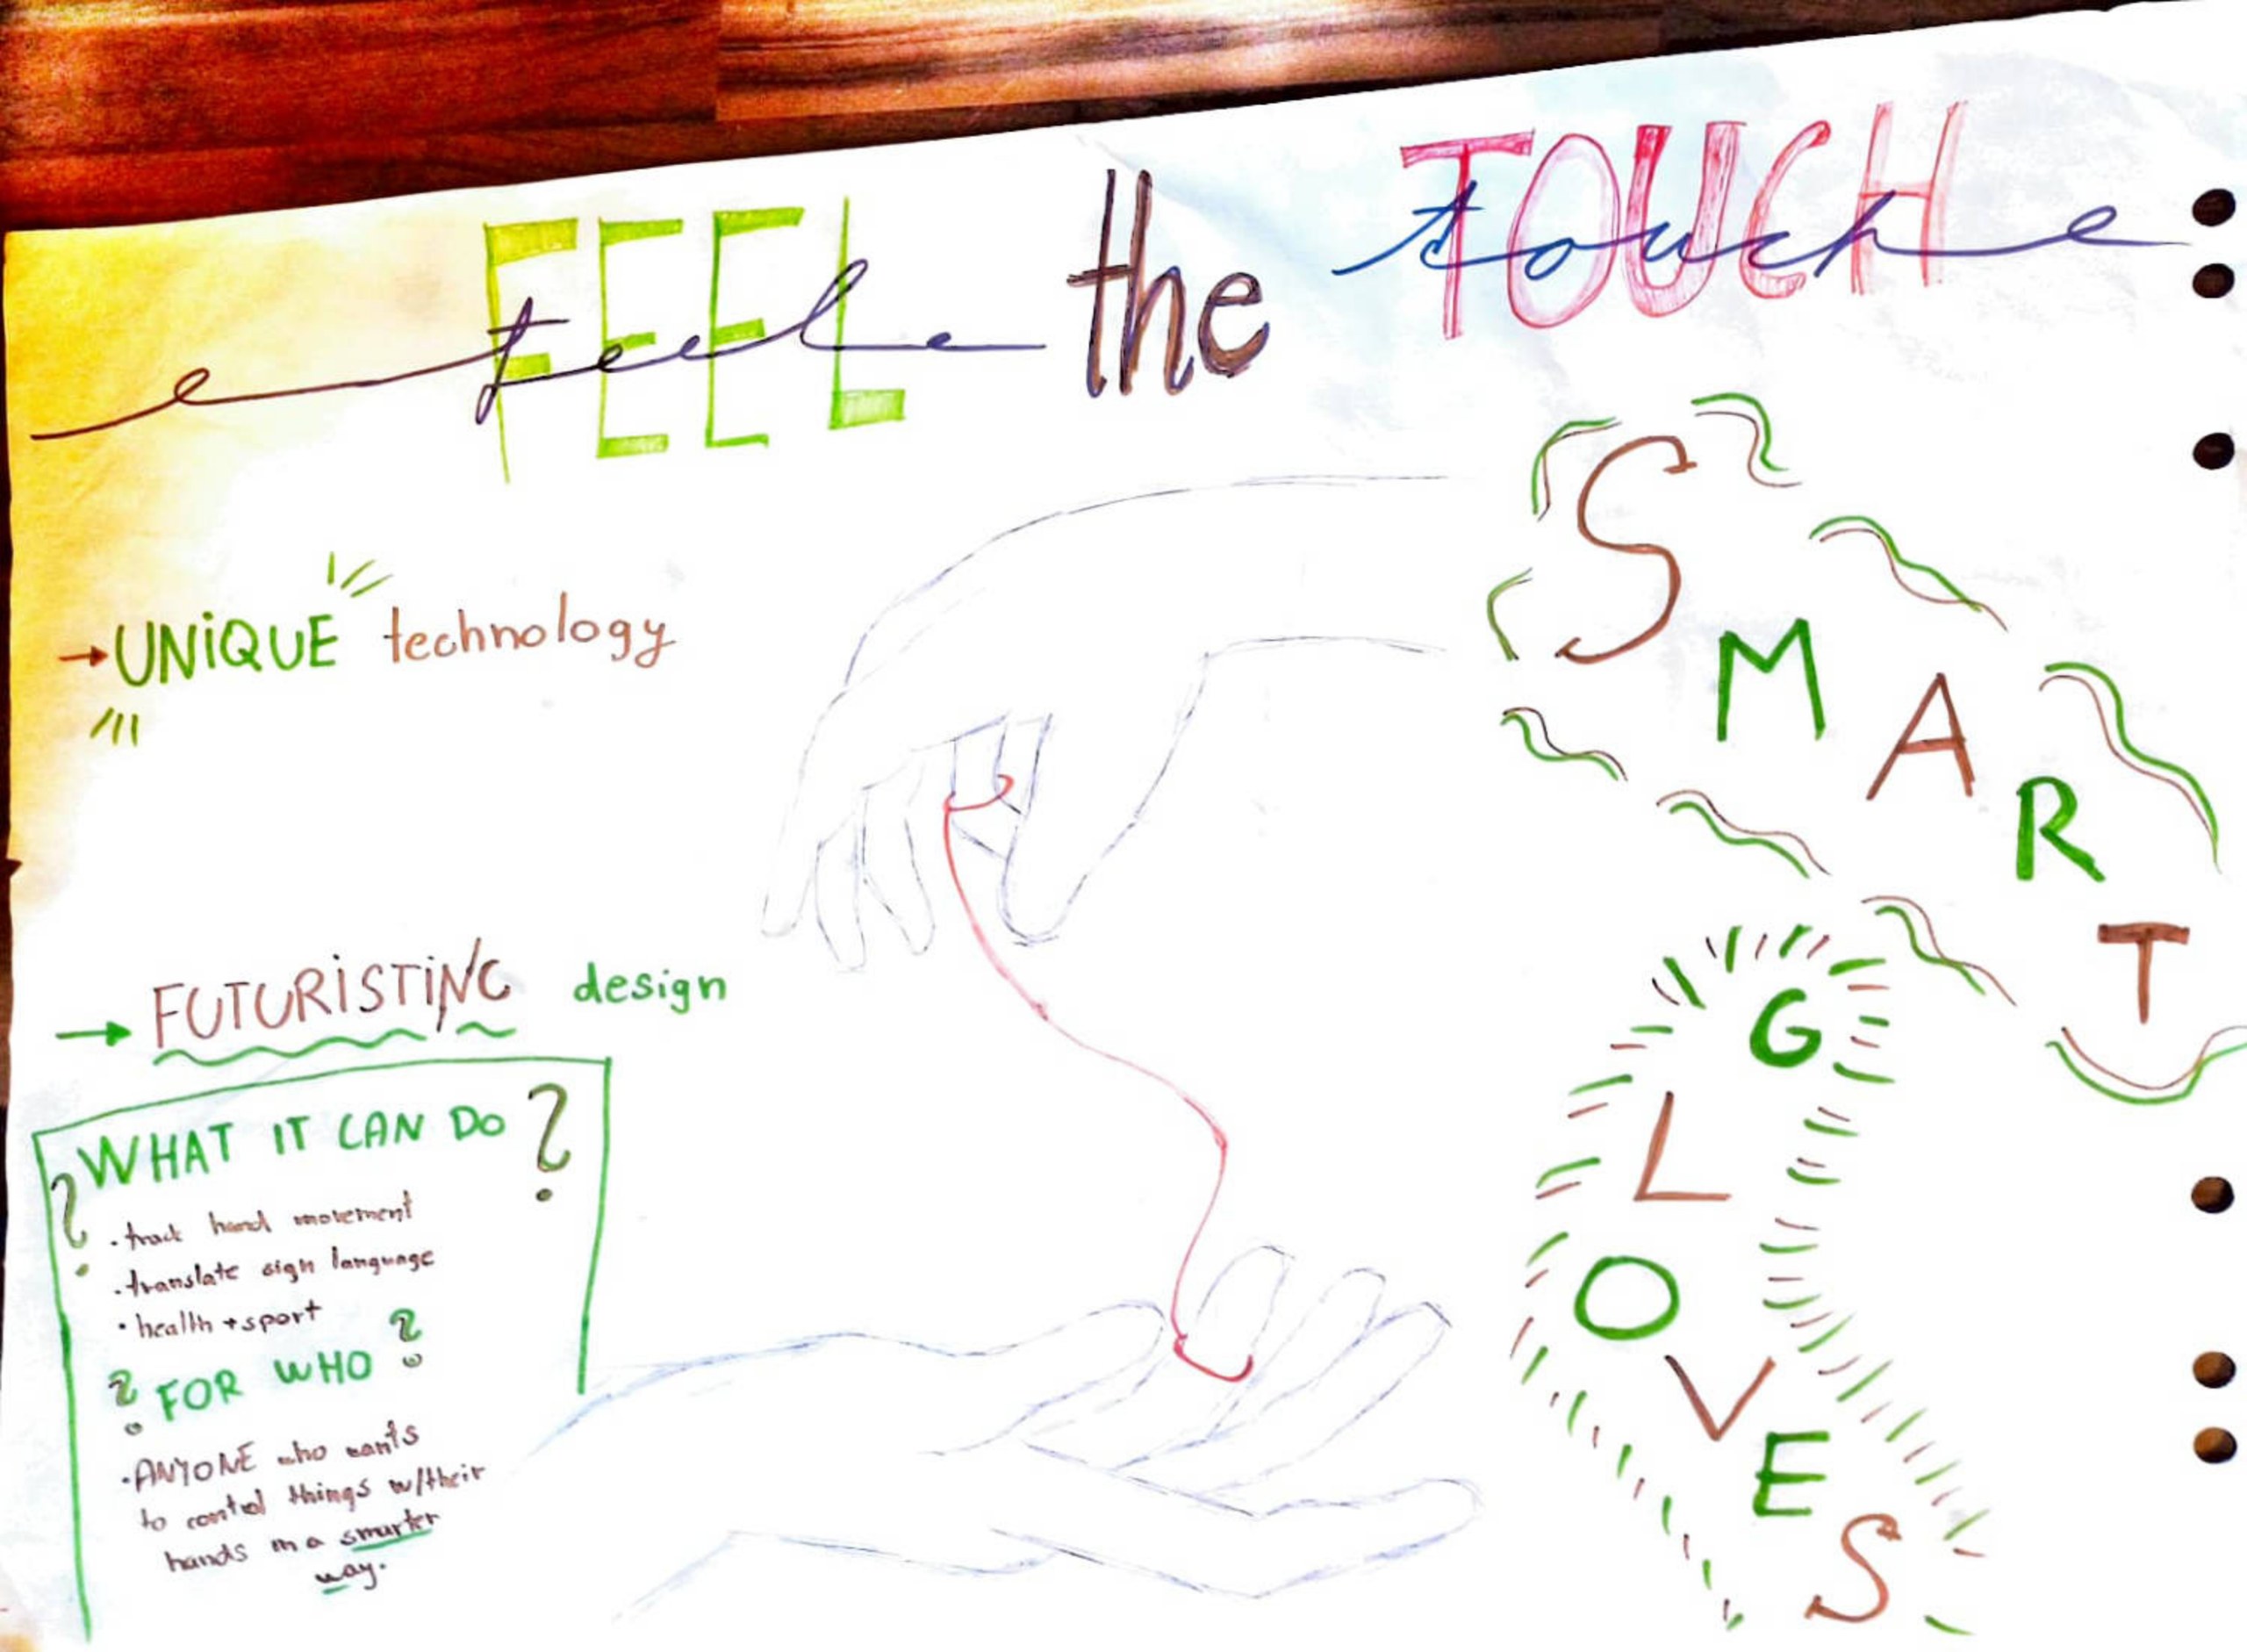 FEEL the TOUCH
feel touch
→ UNiQUE technology
→ FUTURiSTiNG design
SMART
GLOVES
WHAT IT CAN DO ?
?
• track hand movement
• translate sign language
• health + sport
? FOR WHO ?
• ANYONE who wants
to control things w/their
hands in a smarter
way.